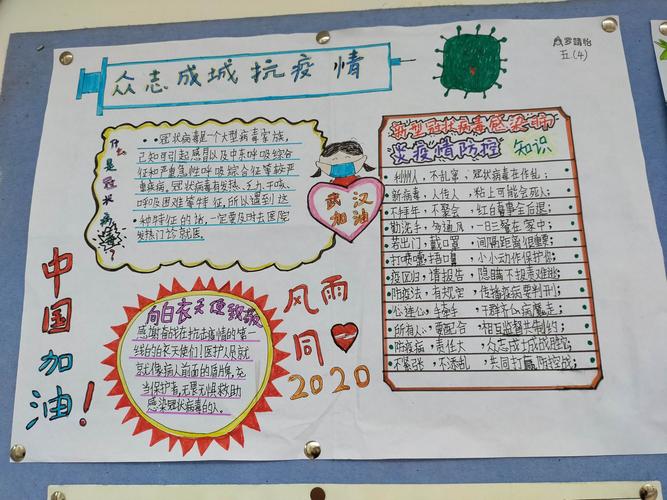 众志成城抗疫情
罗婧怡
五(4)
什么是冠状病毒
冠状病毒是一个大型病毒家族,
己知可引起感冒以及中东呼吸综合
征和严重急性呼吸综合征等较严
重疾病。冠状病毒有发热、乏力、干咳、
呼吸困难等特征,所以遇到这
种特征的话,一定要及时去医院
发热门诊就医。
武汉
加油
新型冠状病毒感染肺
炎疫情防控 知识
利州人,不乱窜,冠状病毒在作乱;
新病毒,人传人,粘上可能会死人;
不拜年,不聚会,红白喜事会后退;
勤洗手,多通风,一日三餐在家中;
若出门,戴口罩,间隔距离很重要;
打喷嚏捂口鼻,小小动作保护你;
疫区归,请报告,隐瞒不报责难逃;
防疫法,有规定,传播疫病要判刑;
心连心,手牵手,干群齐心病魔走;
所有人,要配合,相互监督共制约;
防疫病,责任大,众志成城战胜它;
不紧张,不添乱,共同打赢防控战;
中国加油!
向白衣天使致敬
感谢奋战在抗击疫情的第一
线的白衣天使们!医护人员就
就像病人前面的盾牌,充
当保护者,无畏无惧救助
感染冠状病毒的人。
风雨
同
2020